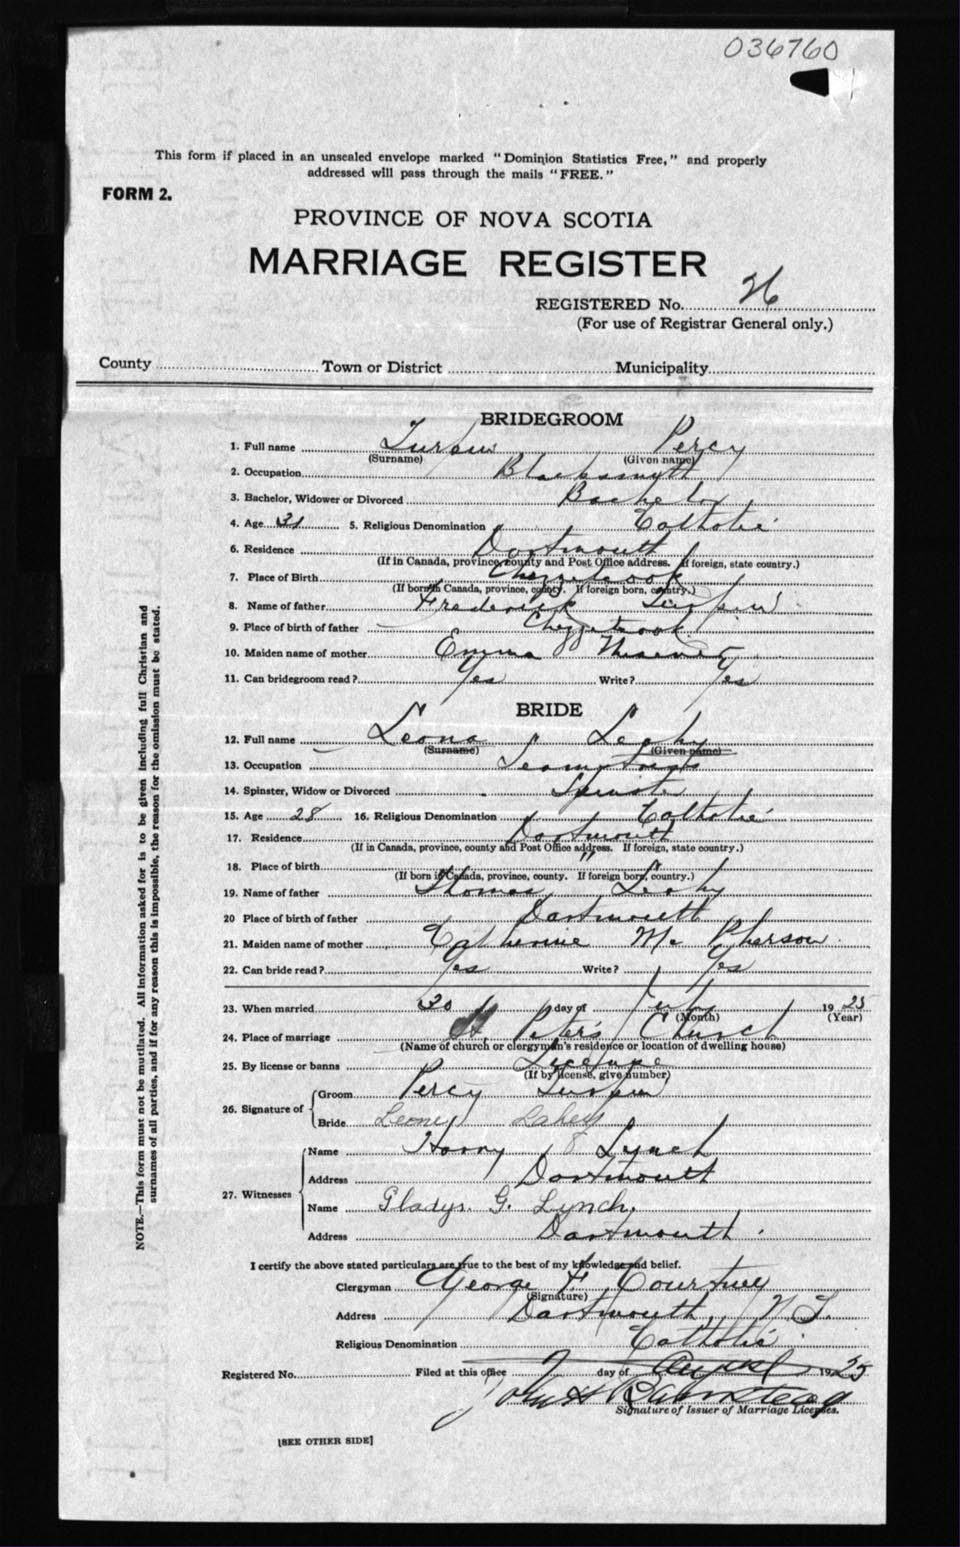 036760
This form if placed in an unsealed envelope marked "Dominion Statistics Free," and properly
addressed will pass through the mails "FREE."
FORM 2.
PROVINCE OF NOVA SCOTIA
MARRIAGE REGISTER
REGISTERED No. 26
(For use of Registrar General only.)
County Town or District Municipality
BRIDEGROOM
1. Full name Turpin Percy
(Surname) (Given name)
2. Occupation Blacksmyth
3. Bachelor, Widower or Divorced Bachelor
4. Age 31 5. Religious Denomination Catholic
6. Residence Dartmouth
(If in Canada, province, county and Post Office address. If foreign, state country.)
7. Place of Birth Chezzetcook
(If born in Canada, province, county. If foreign born, country.)
8. Name of father Frederick Turpin
9. Place of birth of father Chezzetcook
10. Maiden name of mother Emma
11. Can bridegroom read? Yes Write? Yes
BRIDE
12. Full name Leona Leahy
(Surname) (Given name)
13. Occupation
14. Spinster, Widow or Divorced Spinster
15. Age 28 16. Religious Denomination Catholic
17. Residence Dartmouth
(If in Canada, province, county and Post Office address. If foreign, state country.)
18. Place of birth "
(If born in Canada, province, county. If foreign born, country.)
19. Name of father Thomas Leahy
20 Place of birth of father Dartmouth
21. Maiden name of mother Catherine Mc Pherson
22. Can bride read? Yes Write? Yes
23. When married 30 day of July 1925
(Month) (Year)
24. Place of marriage St. Peter's Church
(Name of church or clergyman's residence or location of dwelling house)
25. By license or banns License
(If by license, give number)
26. Signature of Groom Percy Turpin
Bride Leoney Lahey
27. Witnesses
Name Harry Lynch
Address Dartmouth
Name Gladys. G. Lynch.
Address Dartmouth.
I certify the above stated particulars are true to the best of my knowledge and belief.
Clergyman George F. Courtney
(Signature)
Address Dartmouth, N.S.
Religious Denomination Catholic
Registered No. Filed at this office day of August 1925
John H
Signature of Issuer of Marriage Licenses.
[SEE OTHER SIDE]
NOTE.—This form must not be mutilated. All information asked for is to be given including full Christian and
surnames of all parties, and if for any reason this is impossible, the reason for the omission must be stated.